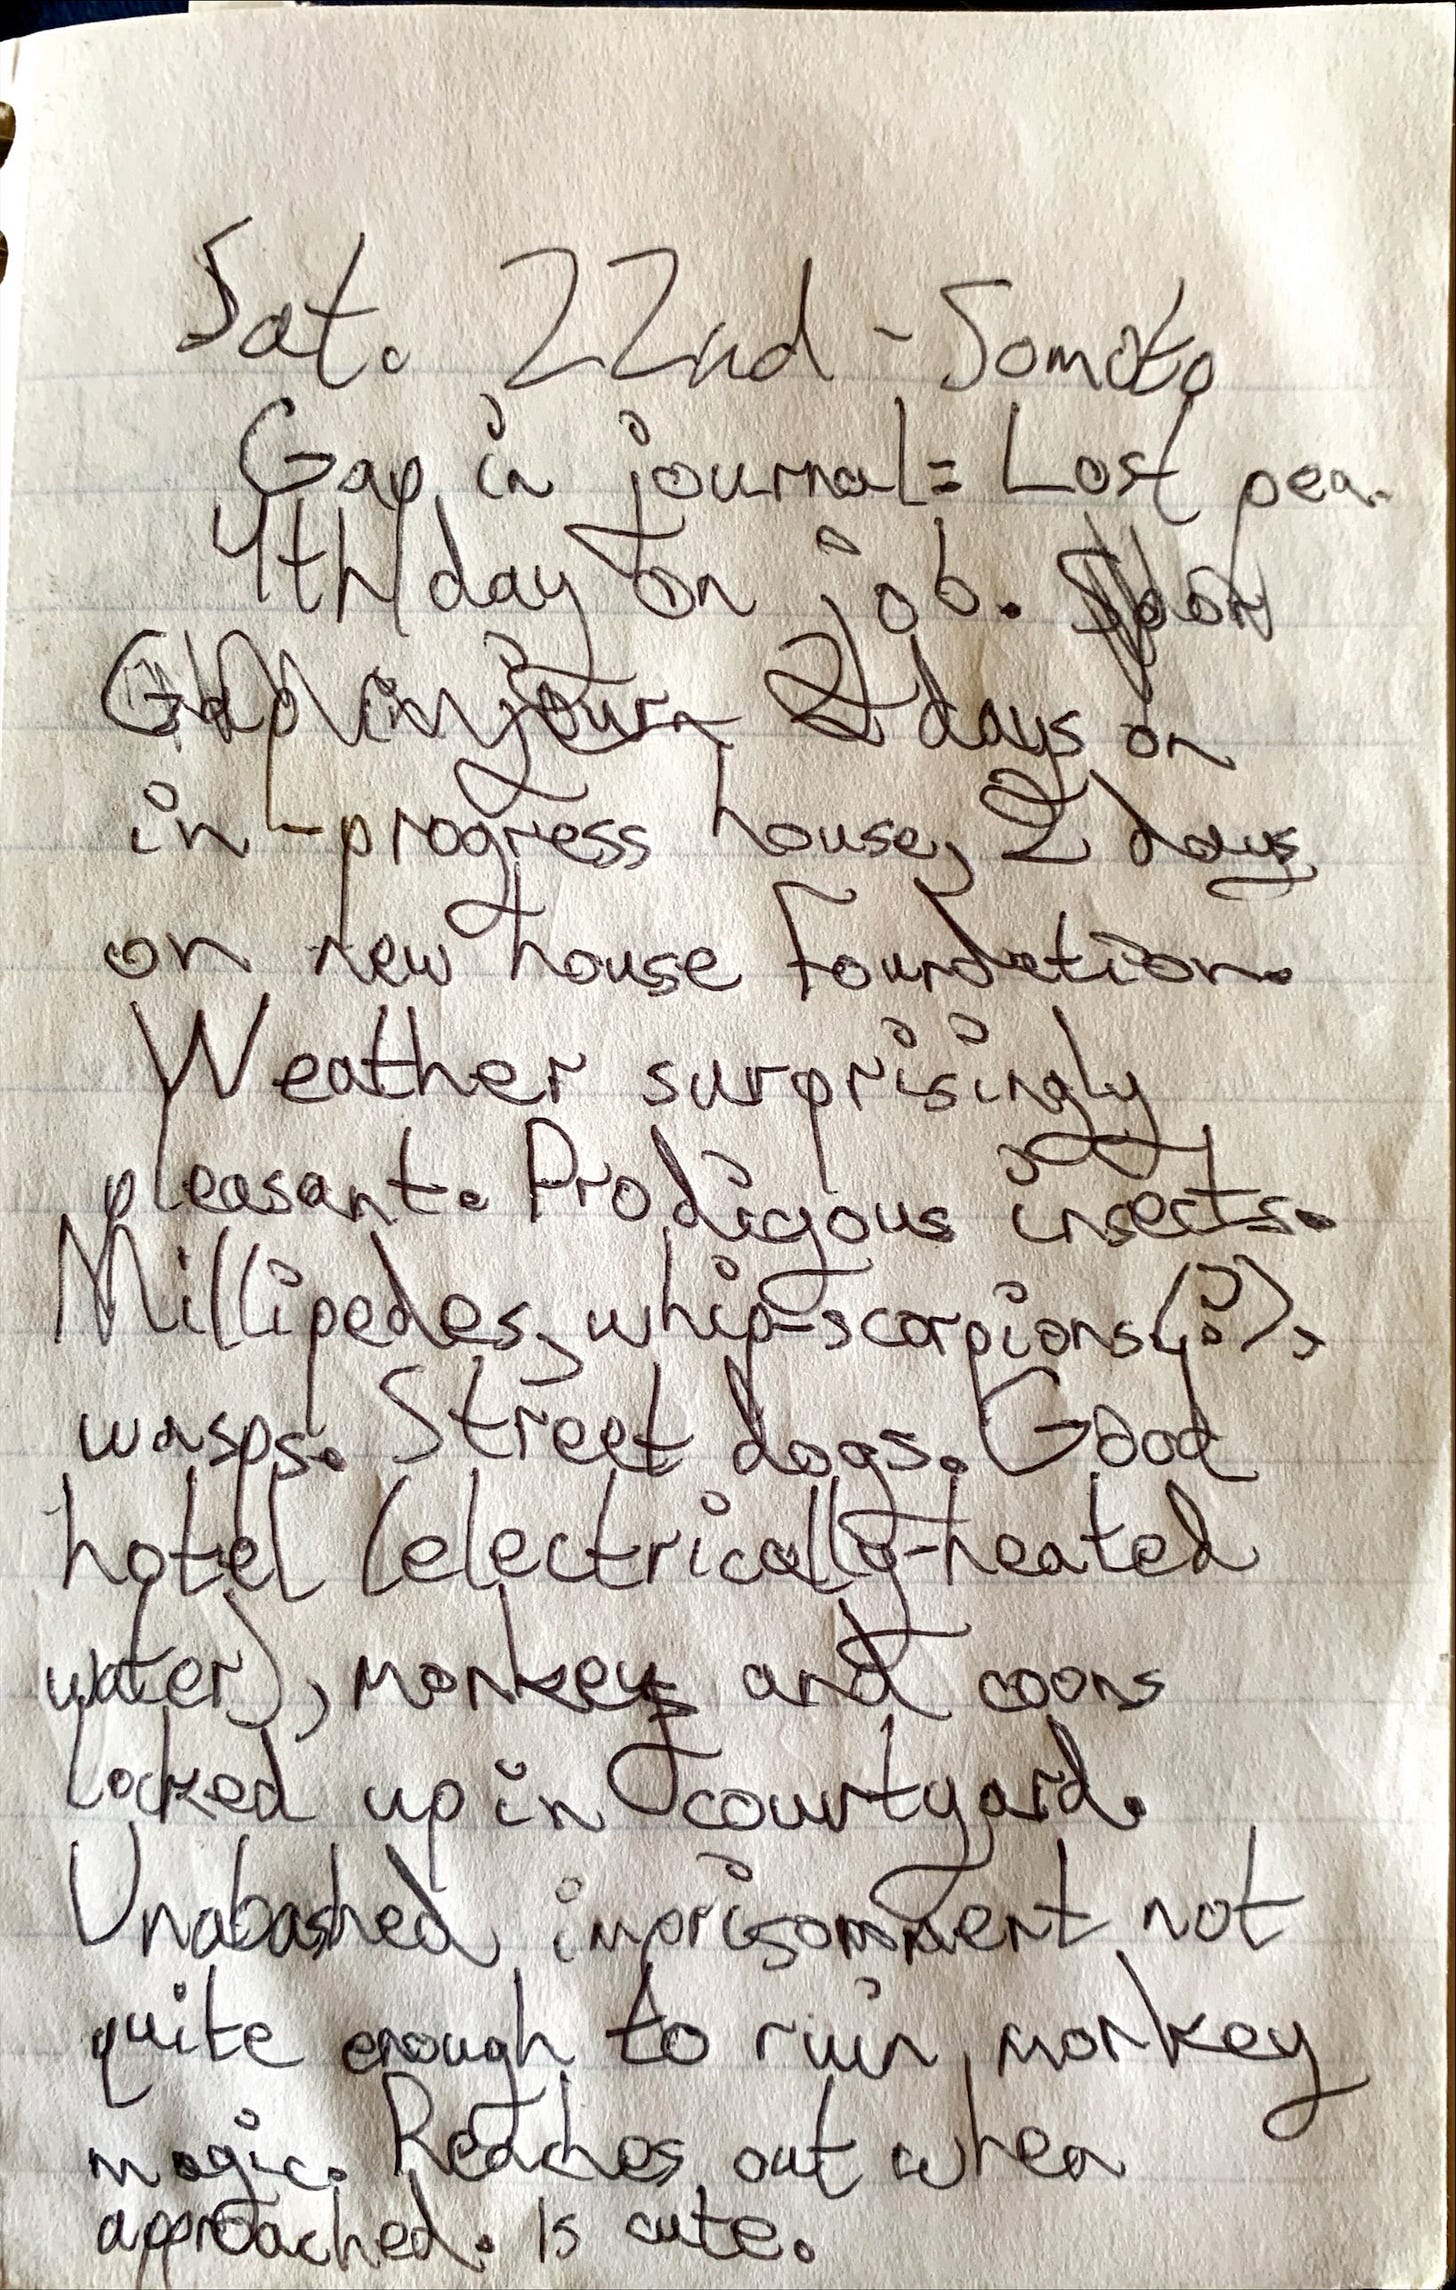 Sat. 22nd - Somoto
Gap in journal = Lost pen.
4th day on job.
2 days on
in-progress house, 2 days
on new house foundation.
Weather surprisingly
pleasant. Prodigous insects.
Millipedes, whip-scorpions(?),
wasps. Street dogs. Good
hotel (electrically-heated
water), monkeys and coons
locked up in courtyard.
Unabashed imprisonment not
quite enough to ruin monkey
magic. Reaches out when
approached. Is cute.